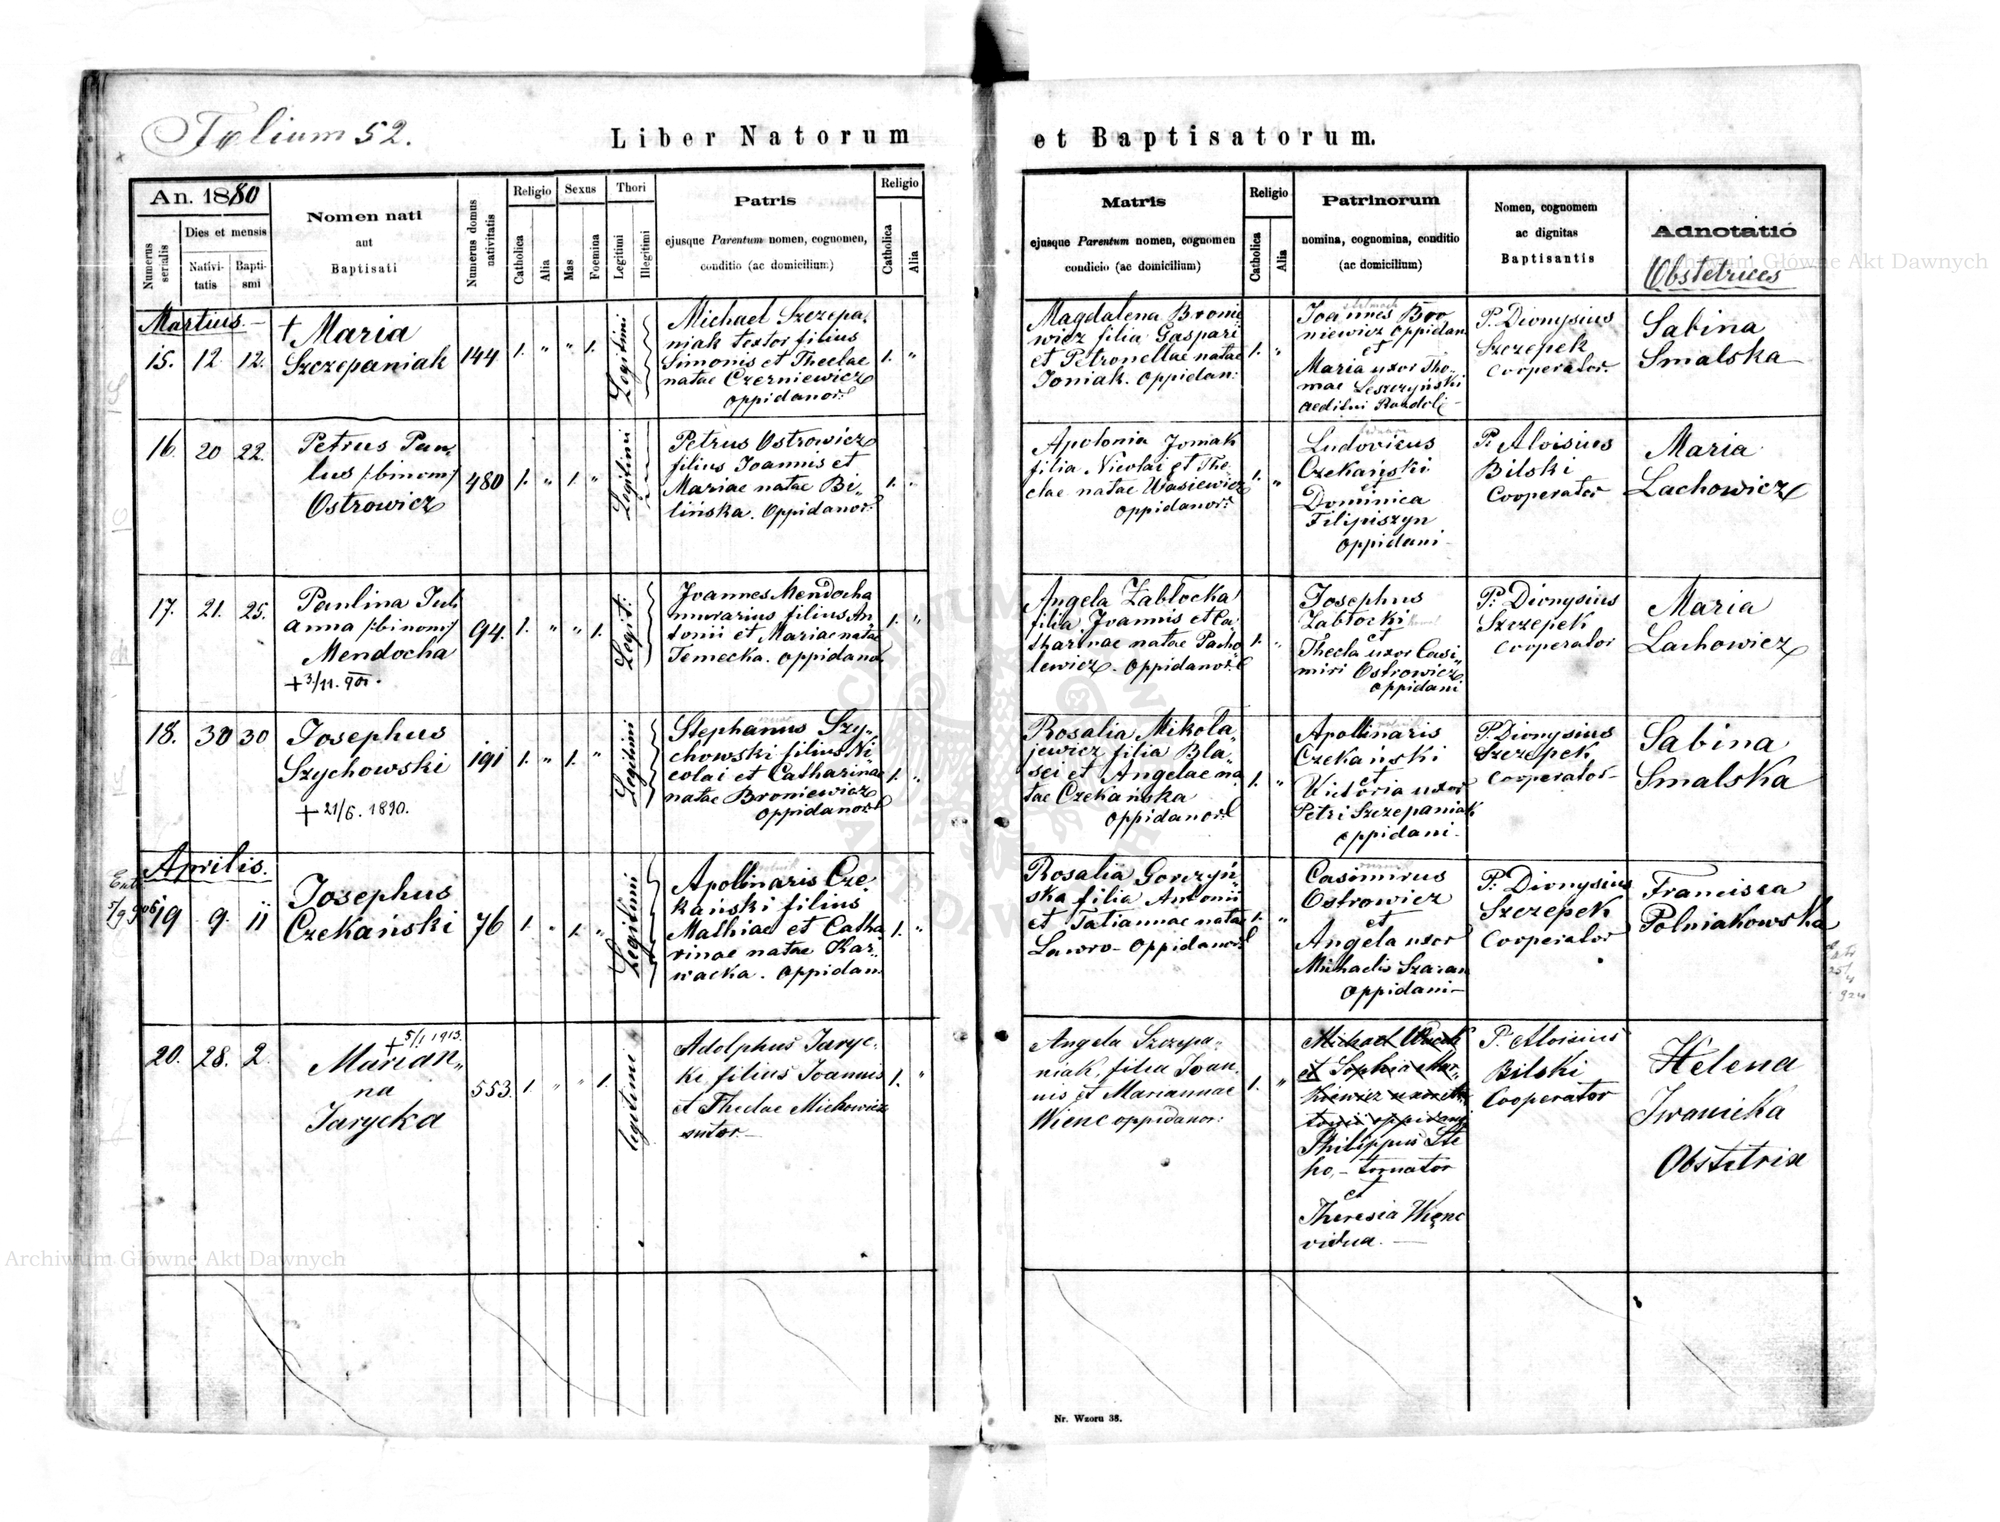 Folium 52.
Liber Natorum
et Baptisatorum.
An. 1880
Numerus serialis
Dies et mensis
Nativi-
tatis
Bapti-
smi
Nomen nati
aut
Baptisati
Numerus domus
nativitatis
Religio
Catholica
Alia
Sexus
Mas
Foemina
Thori
Legitimi
Illegitimi
Patris
ejusque Parentum nomen, cognomen,
conditio (ac domicilium)
Religio
Catholica
Alia
Matris
ejusque Parentum nomen, cognomen
condicio (ac domicilium)
Religio
Catholica
Alia
Patrinorum
nomina, cognomina, conditio
(ac domicilium)
Nomen, cognomem
ac dignitas
Baptisantis
Adnotatió
Obstetrices
Martius.
15. 12. 12.
† Maria
Szczepaniak
144 1. " " 1.
Legitimi
Michael Szczepa-
niak textor filius
Simonis et Theclae
natae Czerniewicz
oppidanor.
1. "
Magdalena Broni
wicz filia Gaspari
et Petronellae natae
Joniak. oppidan:
1. "
Joannes Bro
niewicz oppidan
et
Maria uxor Tho-
mae Leszczyński
aeditui
P. Dionysius
Szczepek
Cooperator.
Sabina
Smalska
16. 20 22.
Petrus Pau-
lus /:binom:/
Ostrowicz
480 1. " 1. "
Legitimi
Petrus Ostrowicz
filius Joannis et
Mariae natae Bi-
lińska. Oppidanor.
1. "
Apolonia Joniak
filia Nicolai et The-
clae natae Wasiewicz
oppidanor.
1. "
Ludovicus
Czekański
et
Dominica
Filipiszyn
oppidani
P. Aloisius
Bilski
Cooperator
Maria
Lachowicz
17. 21. 25.
Paulina Juli
anna /:binom:/
Mendocha
+ 3/11. 901.
94. 1. " " 1.
Legit:
Joannes Mendocha
murarius filius An
tonii et Mariae natae
Temecka. oppidanor.
1. "
Angela Zabłocka
filia Joannis et Ca
tharinae natae Pacho
lewicz. oppidanor.
1. "
Josephus
Zabłocki
et
Thecla uxor Casi-
miri Ostrowicz
oppidani
P. Dionysius
Szczepek
Cooperator
Maria
Lachowicz
18. 30 30
Josephus
Szychowski
+ 21/6. 1890.
191 1. " 1. "
Legitimi
Stephanus Szy-
chowski filius Ni
colai et Catharinae
natae Broniewicz
oppidanor
1. "
Rosalia Mikoła-
jewicz filia Bla-
sei et Angelae na
tae Czekańska
oppidanor
1. "
Apollinaris
Czekański
et
Victoria uxor
Petri Szczepaniak
oppidani
P. Dionysius
Szczepek
Cooperator
Sabina
Smalska
Aprilis.
19 9. 11
Josephus
Czekański
76 1. " 1. "
Legitimi
Apollinaris Cze
kański filius
Mathiae et Catha
rinae natae Kar-
wacka. oppidan.
1. "
Rosalia Gorczyń-
ska filia Antonii
et Tatiannae natae
Ławro- oppidanor
1. "
Casimirus
Ostrowicz
et
Angela uxor
Michaelis Szaran
oppidani
P. Dionysius
Szczepek
Cooperator
Francisca
Polniakowska
20. 28. 2.
+ 5/1 1913.
Marian-
na
Jarycka
553. 1. " " 1.
legitimi
Adolphus Jaryc-
ki, filius Joannis
et Theclae Michowicz
sutor
1. "
Angela Szczepa-
niak, filia Joan-
nis et Mariannae
Wienc oppidanor:
1. "
Michael
et Sophia
Philippus Ste
ho, - tornator
et
Theresia Wienc
vidua.
P. Aloisius
Bilski
Cooperator
Helena
Iwanicka
Obstetrix
Nr. Wzoru 38.
Archiwum Główne Akt Dawnych
Archiwum Główne Akt Dawnych